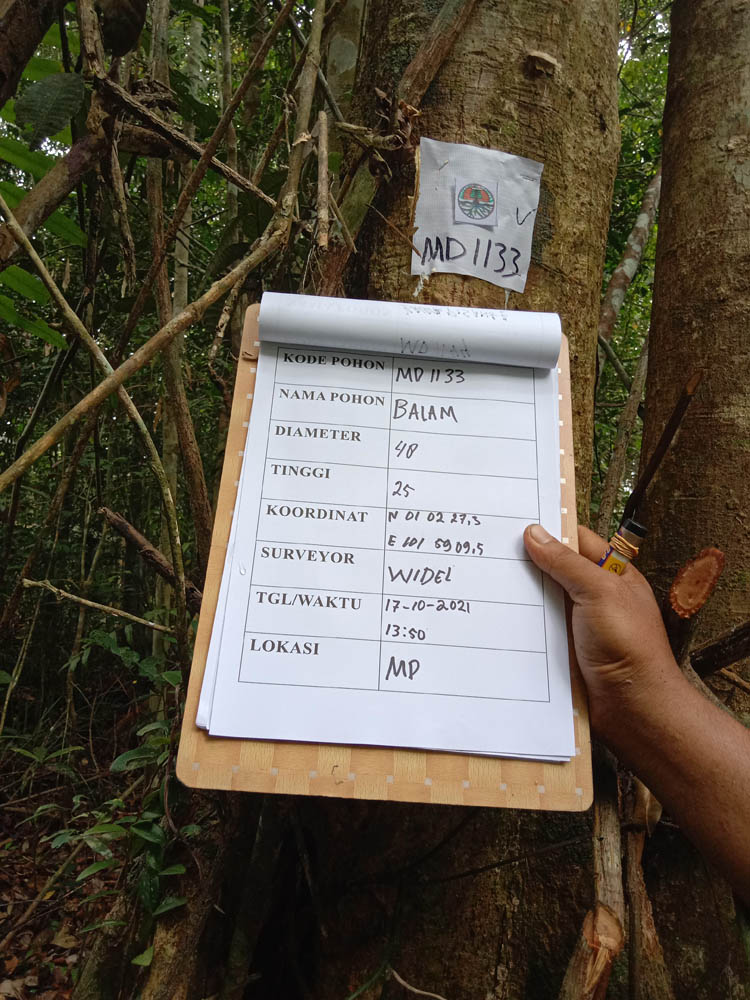 MD 1133
KODE POHON MD 1133
NAMA POHON BALAM
DIAMETER 48
TINGGI 25
KOORDINAT N 01 02 27,3
E 101 59 09,5
SURVEYOR WIDEL
TGL/WAKTU 17-10-2021
13:50
LOKASI MP